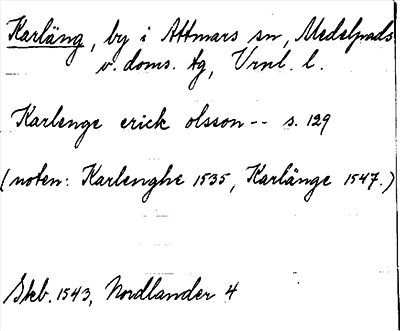 Karläng, by i Attmars sn, Medelpads
v. doms. tg, Vrnl. l.
Karlenge erick olsson -- s. 129
(noten: Karlenghe 1535, Karlänge 1547.)
Skb. 1543, Nordlander 4